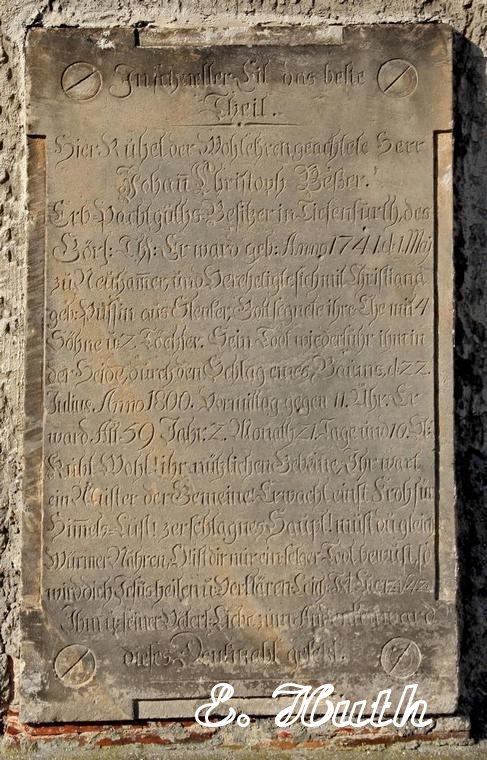 In schneller Eil das beste
Theil.
Hier Ruhet der Wohlehrengeachtete Herr
Johan Christoph
Erb-Pachtguths-Besitzer in Tiefenfurth, des
Görl: Er ward geb: Anno 1741. d. 1 Maj
zu Neuhamer, und Vereheligte sich mit Christiana
geb: aus Gott segnete ihre Ehe mit 4
Söhne u: 2. Töchter. Sein Tod wiederfuhr ihm in
der Heide, durch den Schlag eines Baums, d. 22.
Julius. Anno 1800. Vormittag gegen 11. Uhr. Er
ward Alt 59 Jahr. 2. Monath 21. Tage und 10. St:
Ruht Wohl! ihr nützlichen Gebeine, Ihr wart
ein Muster der Gemeine! Erwacht einst Froh für
Himels-Lust! zerschlagnes Haupt! must du gleich
Würmer Nähren, Ist dir nur ein selger Tod bewust, so
wird dich Jesus heilen u: Verklären.
Ihm ist seiner Liebe zum Andenken ward
dieses Denkmahl gesetzt.
E. Huth